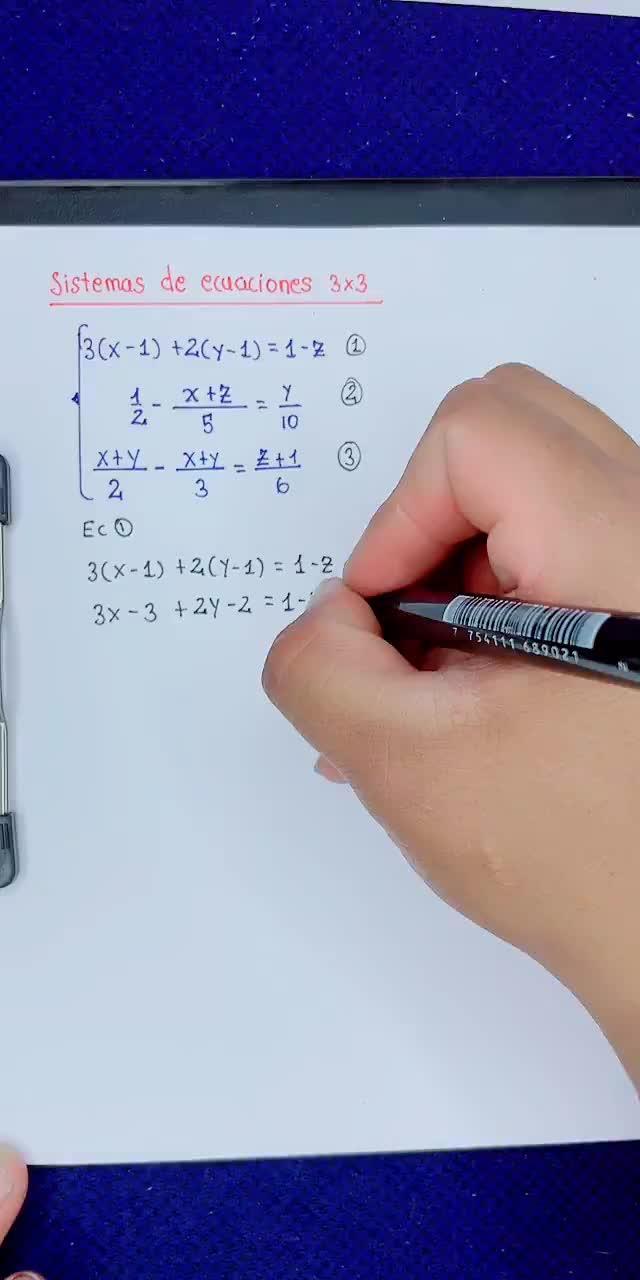 Sistemas de ecuaciones 3x3
3(x-1) +2(y-1) = 1-z ①
1/2 - (x+z)/5 = y/10 ②
(x+y)/2 - (x+y)/3 = (z+1)/6 ③
Ec ①
3(x-1) +2(y-1) = 1-z
3x-3 +2y-2 = 1-
7 754111 689021